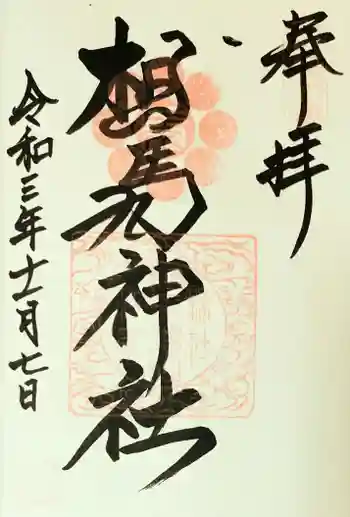 奉拝
相馬神社
令和三年十一月七日